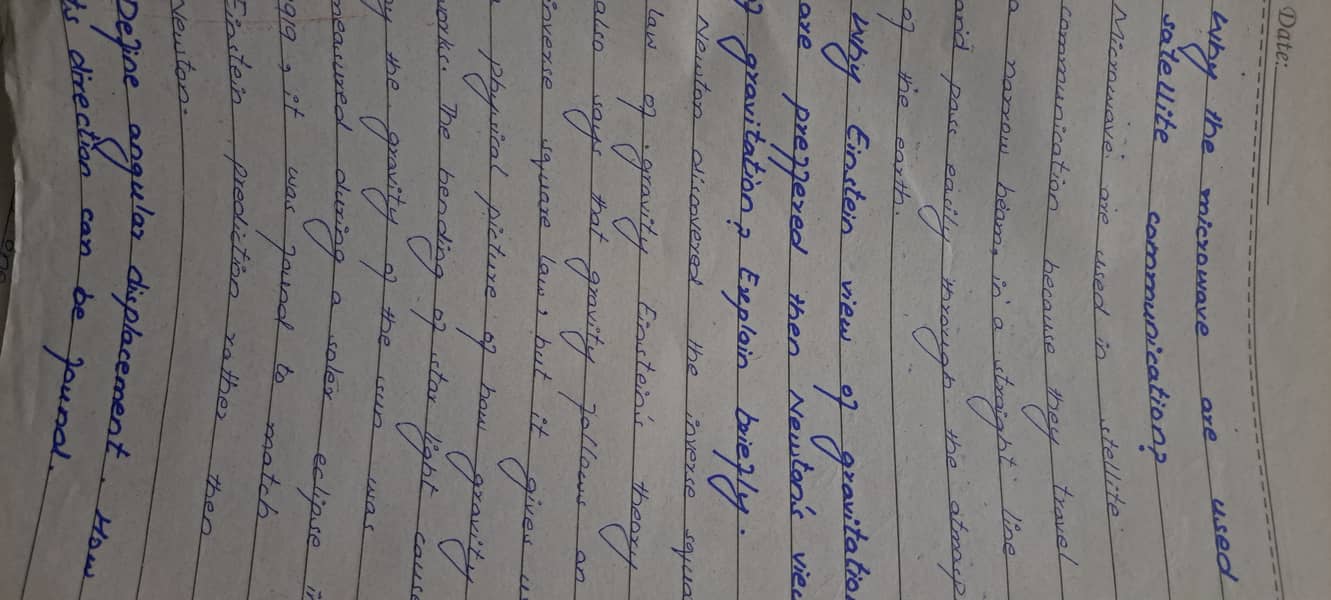 Date:
Why the microwave are used
satellite communication?
Microwave are used in stellite
communication because they travel
a narrow beam, in a straight line
and pass easily through the atmosp
of the earth.
Why Einstein view of gravitatio
are preffered then Newton's view
of gravitation? Explain briefly.
Newton discovered the inverse squa
law of gravity Einstein's theory
also says that gravity follows an
inverse square law, but it gives us
physical picture of how gravity
works. The bending of star light cause
by the gravity of the sun was
measured during a soler eclipse in
1919, it was found to match
Einstein prediction rather then
Newton.
Define angular displacement. How
its direction can be found.